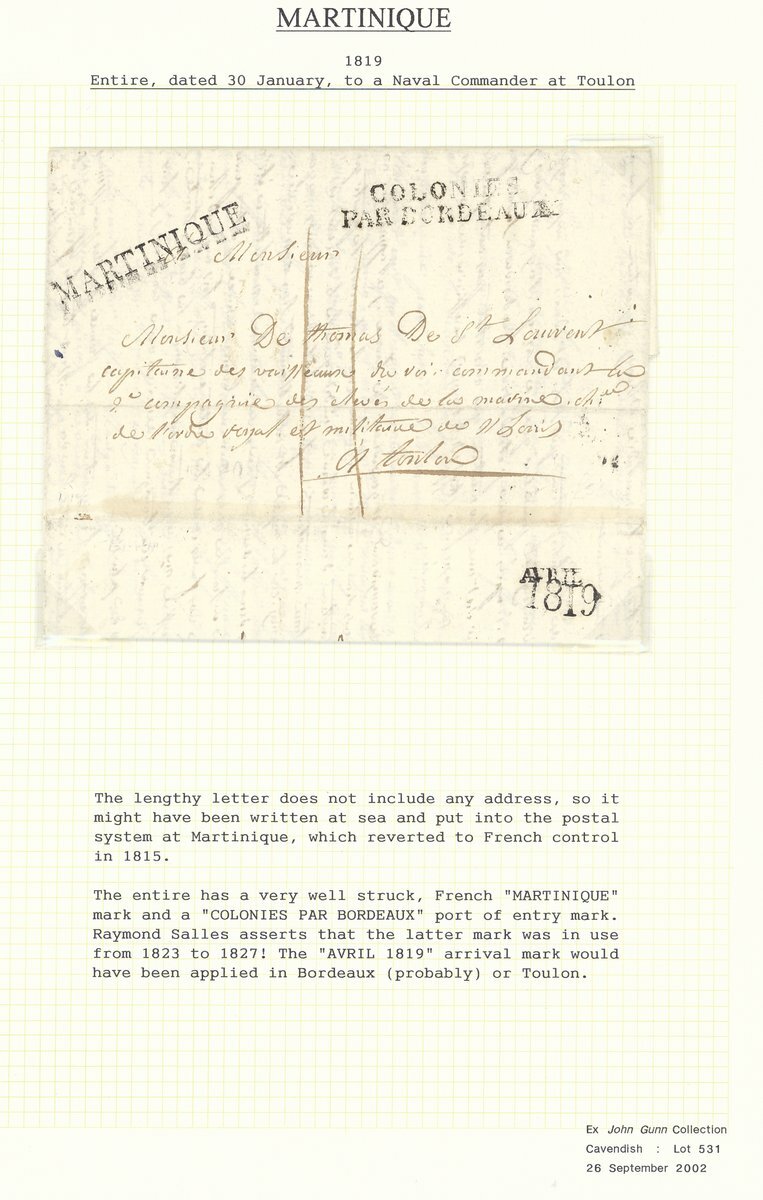 MARTINIQUE
1819
Entire, dated 30 January, to a Naval Commander at Toulon
COLONIES
PAR BORDEAUX
MARTINIQUE
Monsieur
Monsieur De thomas De St Laurent
capitaine des vaisseaux du roi commandant la
2e compagnie des élevés de la marine. ch.er
de l'ordre royal et militaire de St Louis
A toulon
AVRIL
1819
The lengthy letter does not include any address, so it
might have been written at sea and put into the postal
system at Martinique, which reverted to French control
in 1815.
The entire has a very well struck, French "MARTINIQUE"
mark and a "COLONIES PAR BORDEAUX" port of entry mark.
Raymond Salles asserts that the latter mark was in use
from 1823 to 1827! The "AVRIL 1819" arrival mark would
have been applied in Bordeaux (probably) or Toulon.
Ex John Gunn Collection
Cavendish : Lot 531
26 September 2002